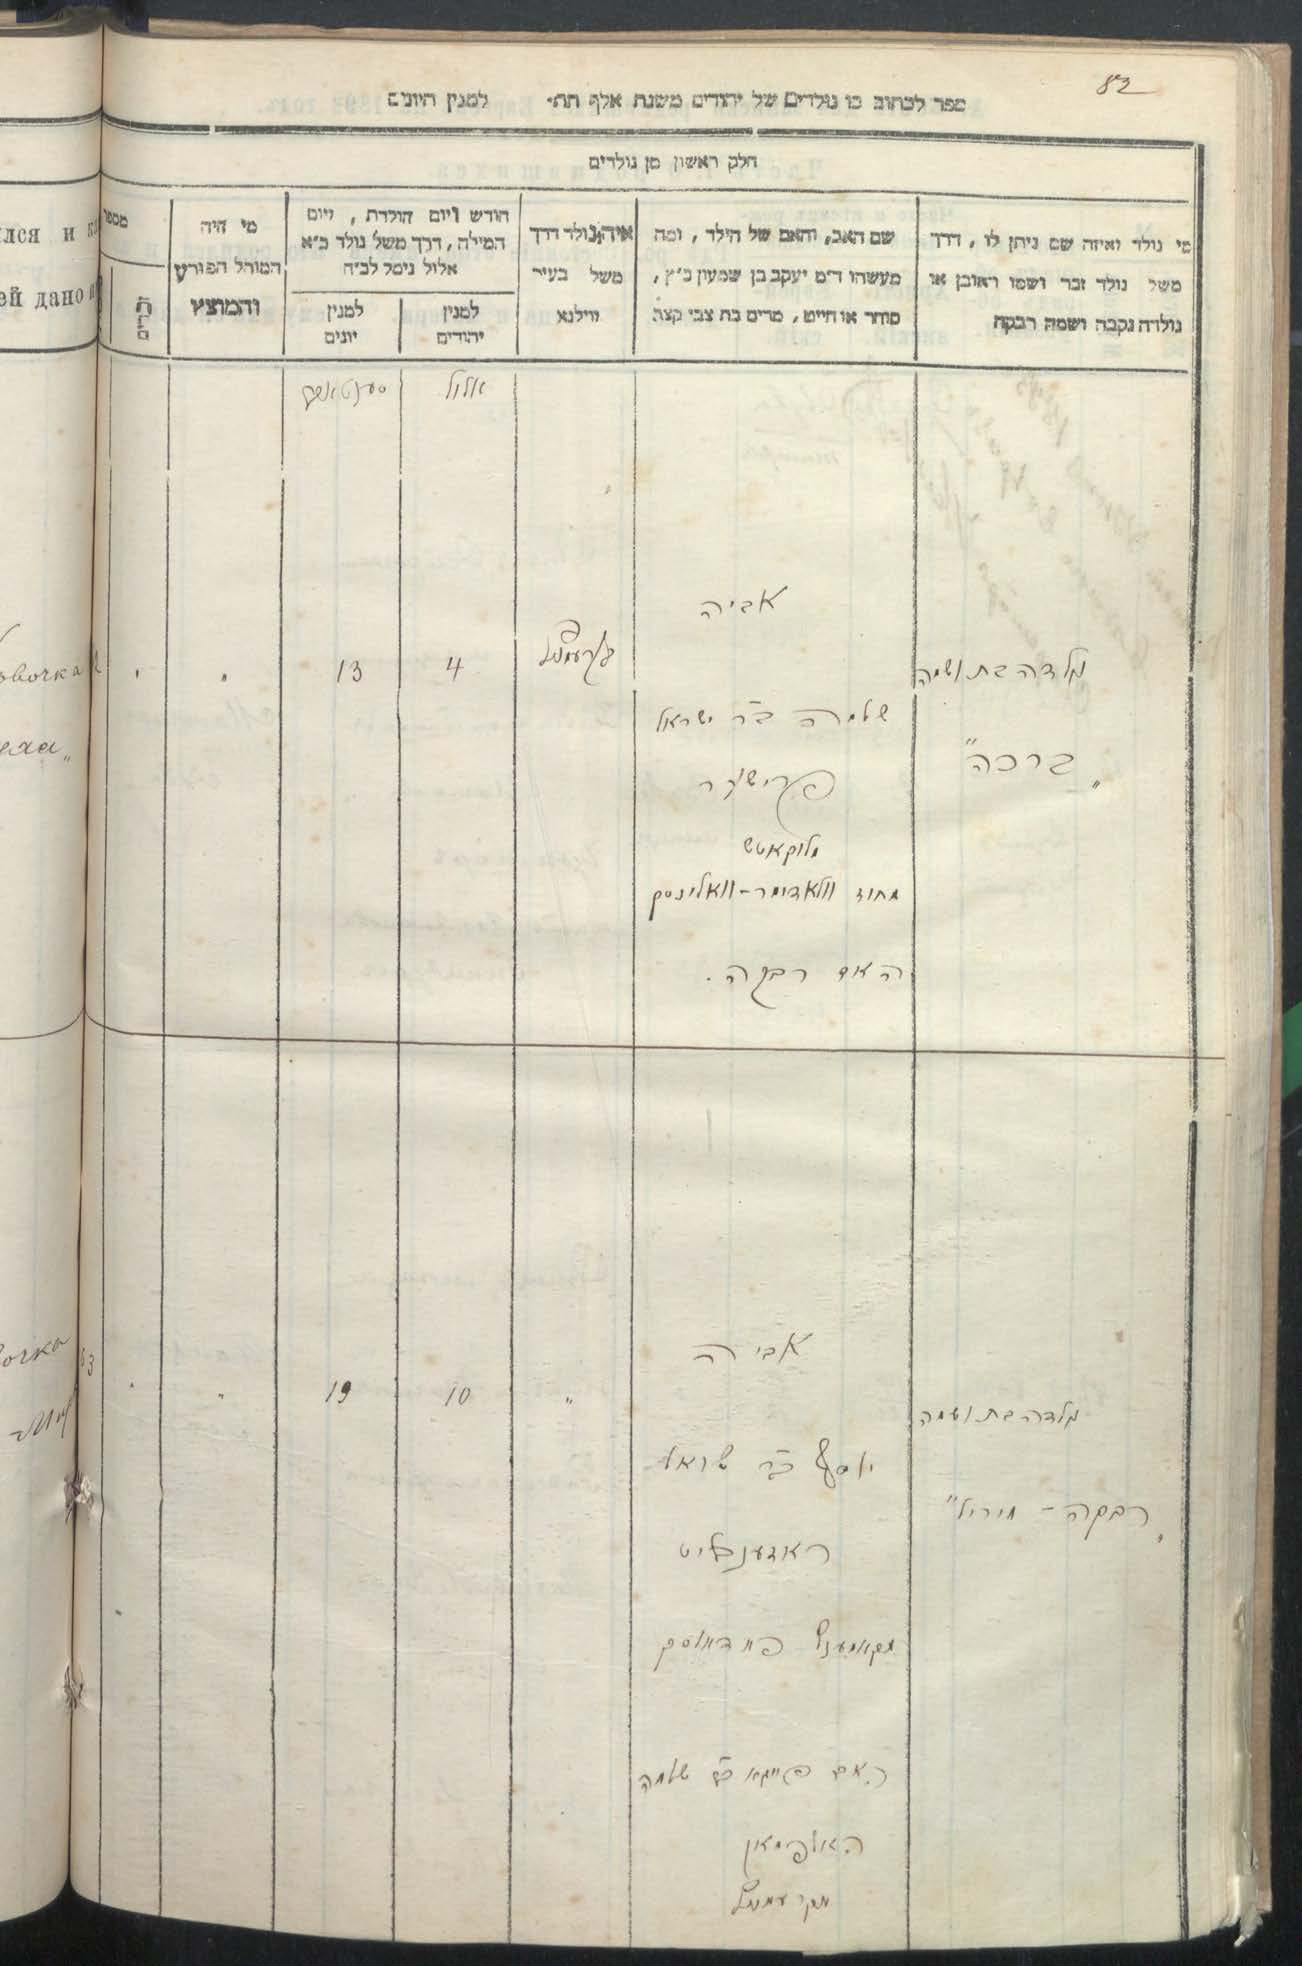 82
ספר לכתוב בו נולדים של יהודים משנת אלף תת״ למנין היונים
חלק ראשון מן נולדים
מי נולד ואיזה שם ניתן לו, דרך
משל נולד זכר ושמו ראובן או
נולדה נקבה ושמה רבקה
שם האב, והאם של הילד, ומה
מעשהו ד״מ יעקב בן שמעון כ״ץ,
סוחר או חייט, מרים בת צבי קצה
איה נולד דרך
משל בעיר
ווילנא
חודש ויום הולדת, ויום
המילה, דרך משל נולד כ״א
אלול ניסל לב״ח
למנין
יהודים
למנין
יונים
מי היה
המוהל הפורע
והמוצץ
מספר
אלול
סענטאבער
נולדה בת ושמה
„ברכה"
אביה
שלמה ב״ר ישראל
פרישקר
מלוקאטש
מחוז וולאדימר-וואלינסק
האם רבקה.
קרעמניץ
4
13
נולדה בת ושמה
„רבקה - מיריל"
אביה
יוסף ב״ר ישראל
ראזענבליט
האם
שלמה
האלפמאן
מקרעמניץ
"
10
19
"
63
ился и
ей дано
овочка
вочка